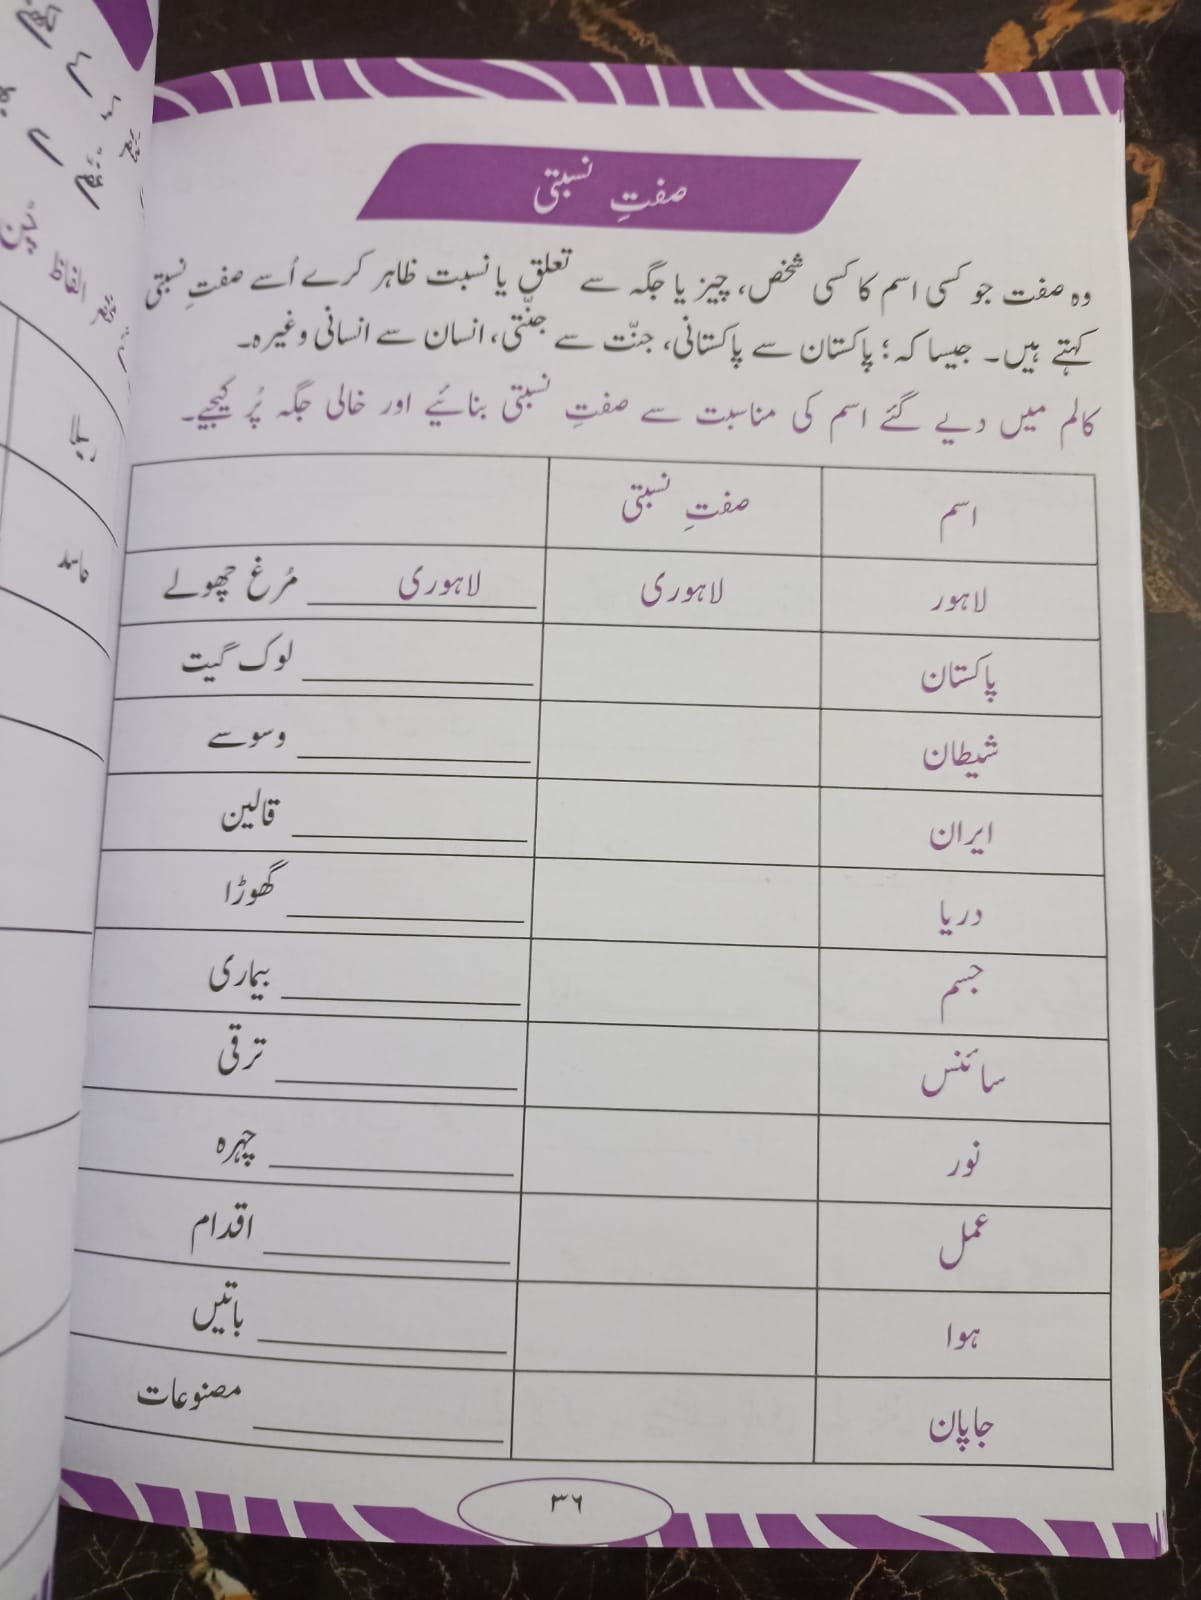 صفتِ نسبتی
وہ صفت جو کسی اسم کا کسی شخص، چیز یا جگہ سے تعلق یا نسبت ظاہر کرے اُسے صفتِ نسبتی
کہتے ہیں۔ جیسا کہ؛ پاکستان سے پاکستانی، جنّت سے جنّتی، انسان سے انسانی وغیرہ۔
کالم میں دیے گئے اسم کی مناسبت سے صفتِ نسبتی بنائیے اور خالی جگہ پُر کیجیے۔
اسم صفتِ نسبتی
لاہور لاہوری لاہوری مُرغ چھولے
پاکستان لوک گیت
شیطان وسوسے
ایران قالین
دریا گھوڑا
جسم بیماری
سائنس ترقی
نور چہرہ
عمل اقدام
ہوا باتیں
جاپان مصنوعات
۳۶
الفاظ